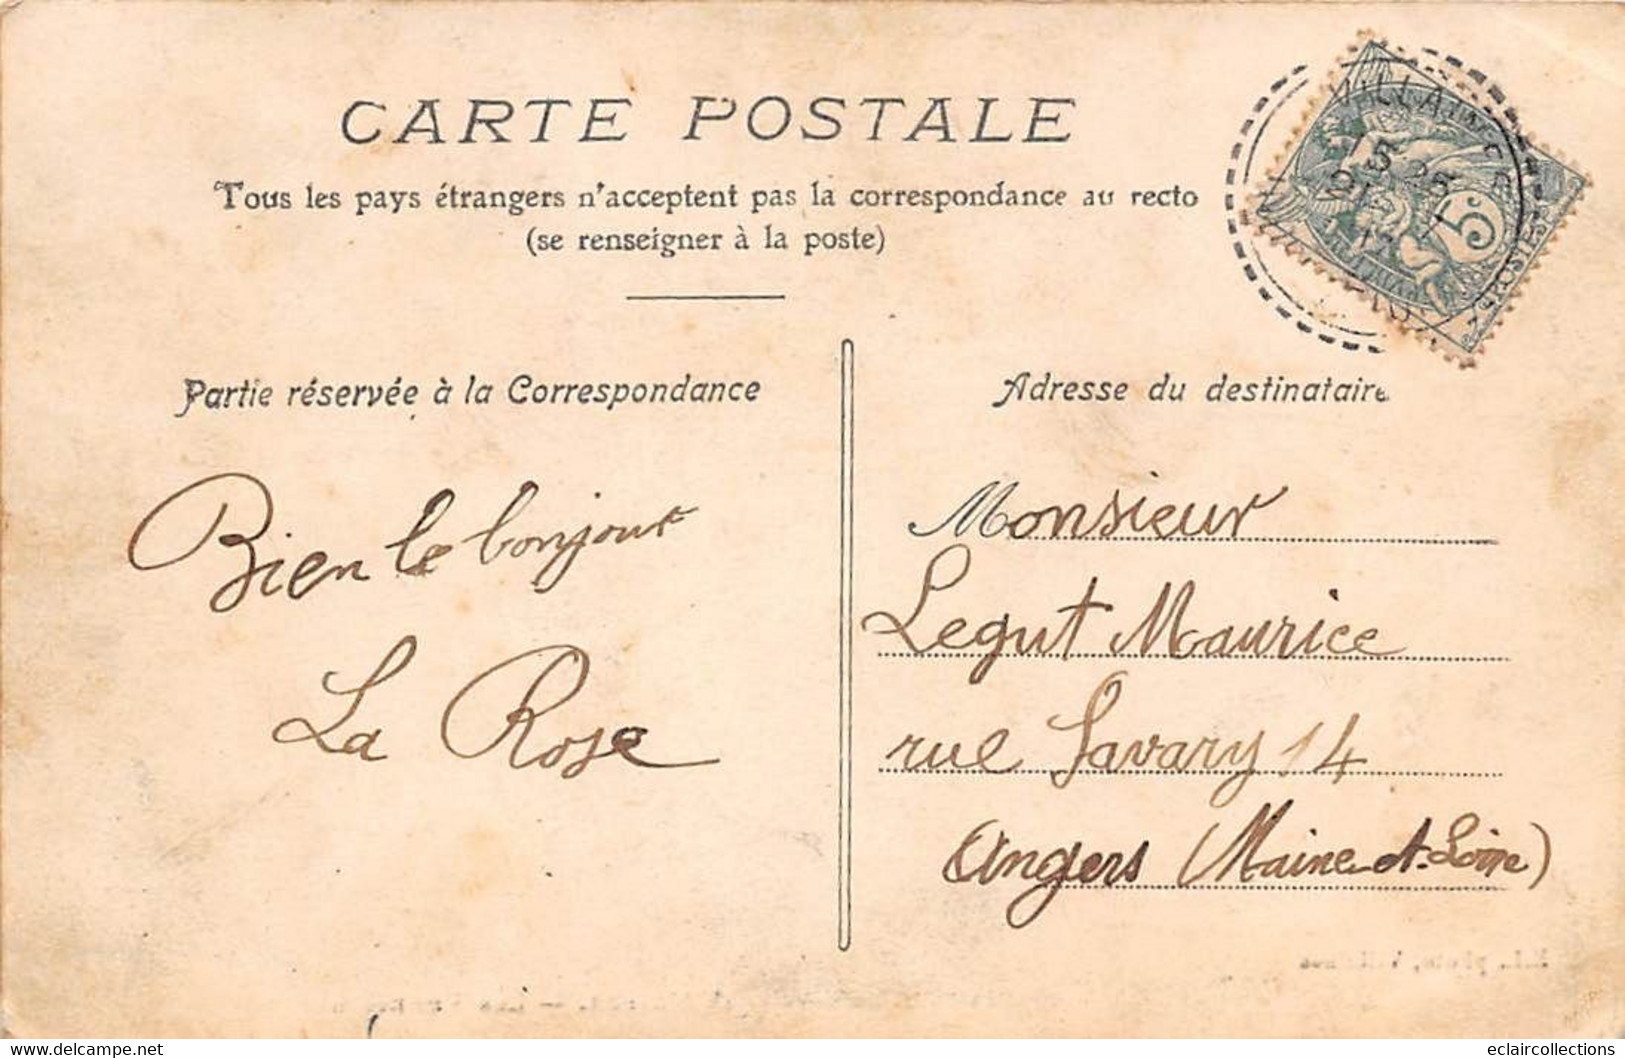 CARTE POSTALE
Tous les pays étrangers n'acceptent pas la correspondance au recto
(se renseigner à la poste)
Partie réservée à la Correspondance
Adresse du destinataire
Bien le bonjour
La Rose
Monsieur
Legut Maurice
rue Savary 14
Angers (Maine-et-Loire)
5c
POSTES
www.delcampe.net
eclaircollections